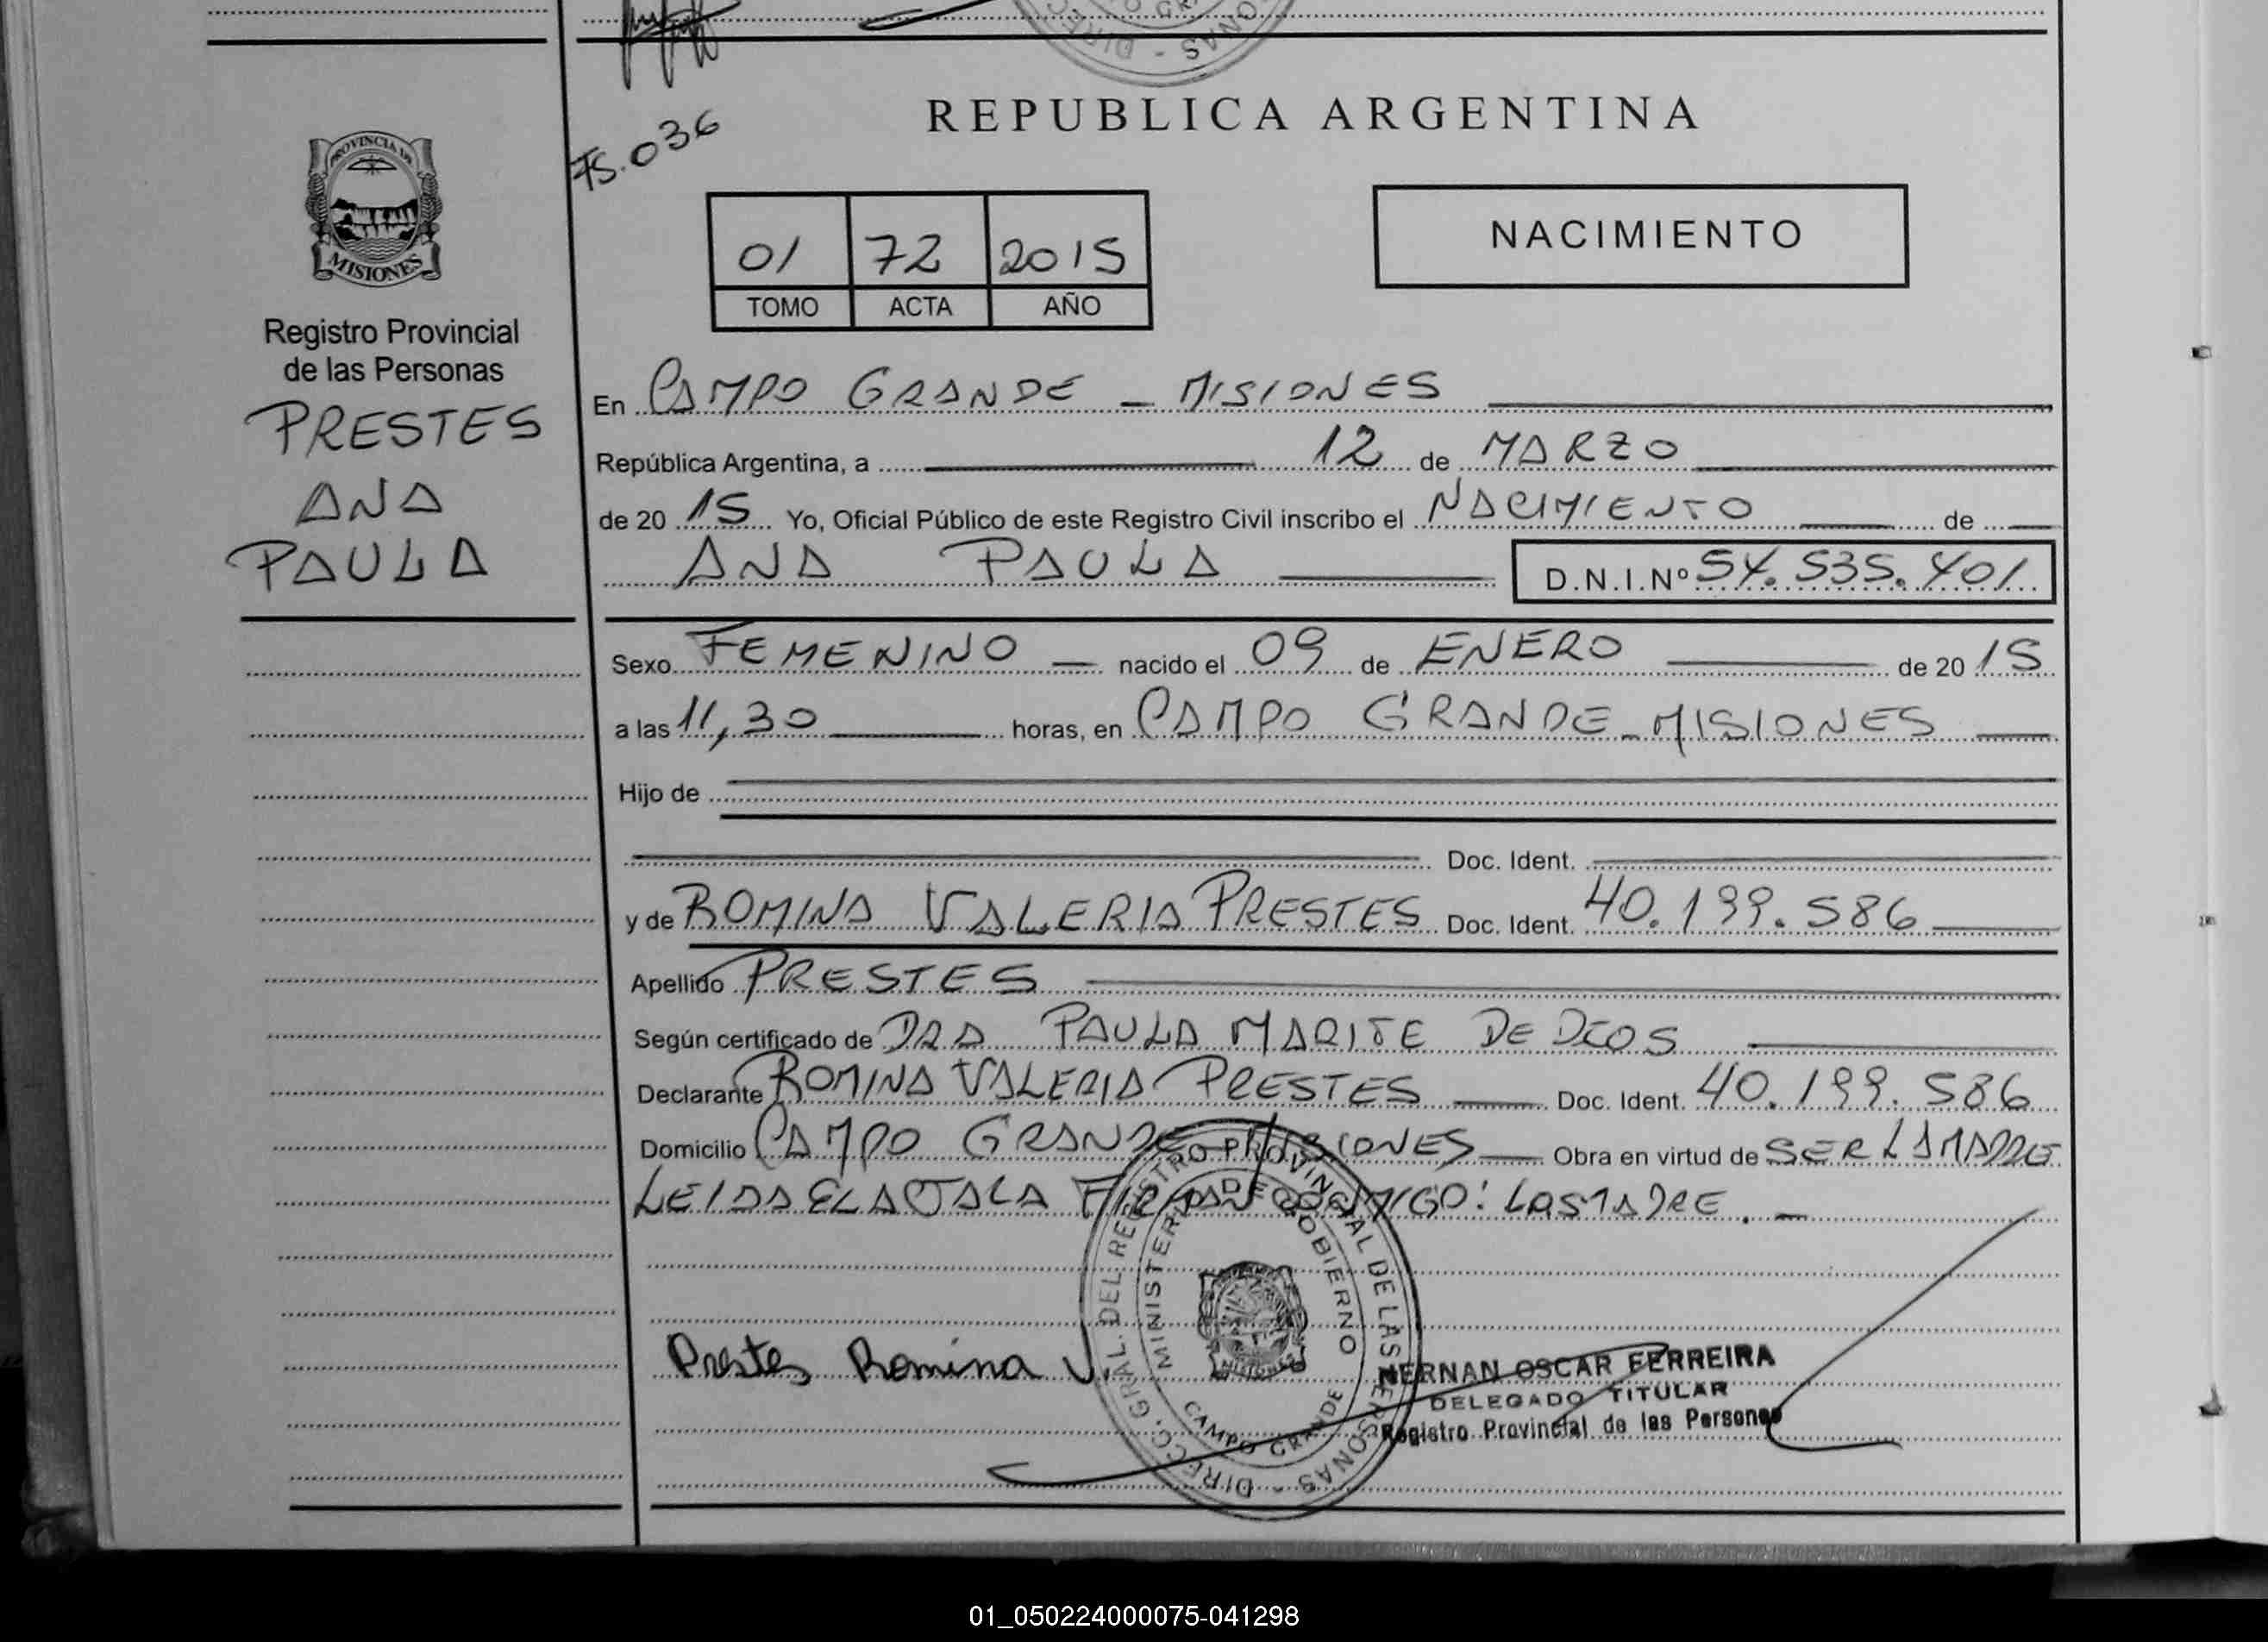 DIRE - NAS
REPUBLICA ARGENTINA
FS. 036
PROVINCIA DE
MISIONES
NACIMIENTO
01 72 2015
TOMO ACTA AÑO
Registro Provincial
de las Personas
PRESTES
ANA
PAULA
En CAMPO GRANDE - MISIONES
República Argentina, a 12 de MARZO
de 20 15 Yo, Oficial Público de este Registro Civil inscribo el NACIMIENTO de
ANA PAULA D.N.I.Nº 54.535.401
Sexo FEMENINO nacido el 09 de ENERO de 20 15
a las 11,30 horas, en CAMPO GRANDE - MISIONES
Hijo de
Doc. Ident.
y de ROMINA VALERIA PRESTES Doc. Ident. 40.199.586
Apellido PRESTES
Según certificado de DRA PAULA MARITE DE DIOS
Declarante ROMINA VALERIA PRESTES Doc. Ident. 40.199.586
Domicilio CAMPO GRANDE MISIONES Obra en virtud de SER LA MADRE
LEIDA EL ACTA LA FIRMAN CONMIGO: LA MADRE. -
Prestes Romina V.
DIRECC. GRAL. DEL REGISTRO PROVINCIAL DE LAS PERSONAS -
MINISTERIO DE GOBIERNO
MISIONES
CAMPO GRANDE
HERNAN OSCAR FERREIRA
DELEGADO TITULAR
Registro Provincial de las Personas
01_050224000075-041298